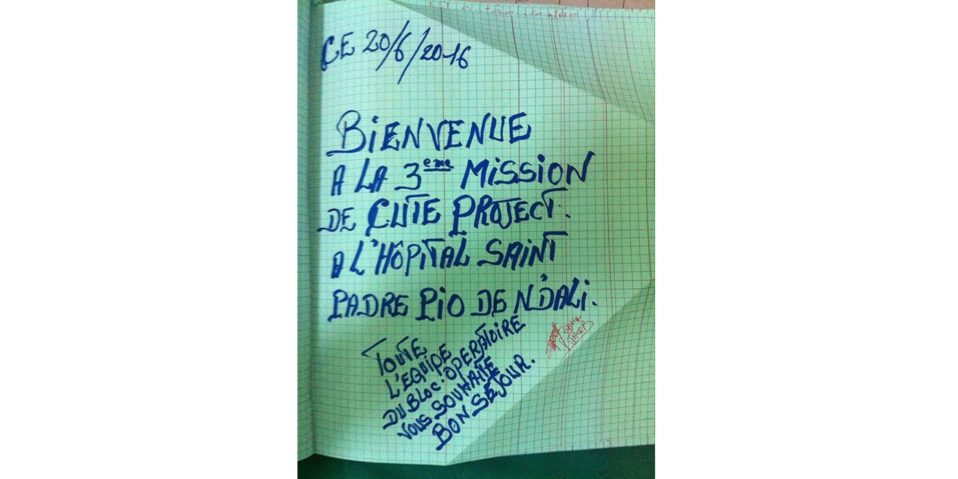 CE 20/6/2016
BIENVENUE
A LA 3eme MISSION
DE CUTE PROJECT.
A L'HÔPITAL SAINT
PADRE PIO DE N'DALI.
TOUTE
L'EQUIPE
DU BLOC OPERATOIRE
VOUS SOUHAITE
BON SÉJOUR.